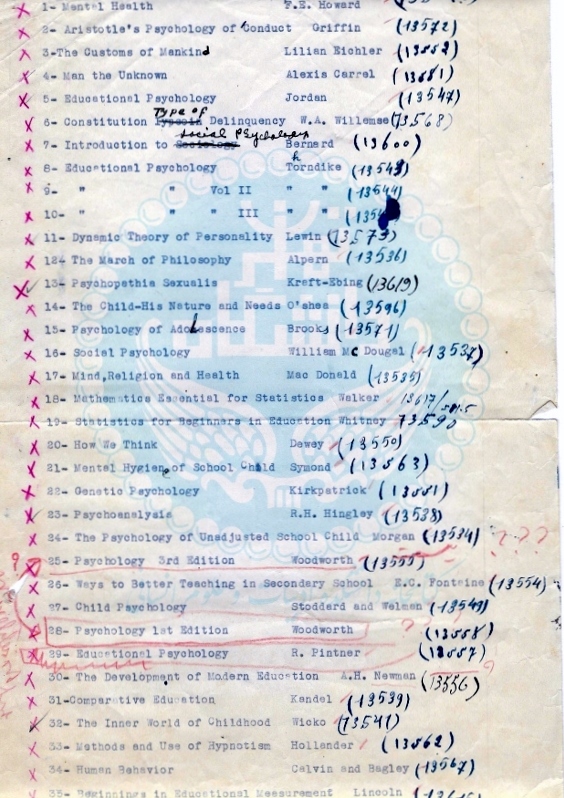 1- Mental Health F.E. Howard
2- Aristotle's Psychology of Conduct Griffin (13572)
3-The Customs of Mankind Lilian Eichler (13552)
4- Man the Unknown Alexis Carrel
5- Educational Psychology Jordan (13547)
Type of
6- Constitution Delinquency W.A. Willemse (13568)
Social Psychology
7- Introduction to Sociology Bernard (13600)
h
8- Educational Psychology Torndike
9- " " Vol II " " (13544)
10- " " " III "
11- Dynamic Theory of Personality Lewin (13573)
124 The March of Philosophy Alpern (13536)
13- Psychopathia Sexualis Kraft-Ebing (13619)
14- The Child-His Nature and Needs O'shea (13596)
15- Psychology of Adolescence Brooks (13571)
16- Social Psychology William Mc Dougal (13537)
17- Mind,Religion and Health Mac Donald (13535)
18- Mathematics Essential for Statistics Walker 13617/
19- Statistics for Beginners in Education Whitney 13590
20- How We Think Dewey (13550)
21- Mental Hygiene of School Child Symond (13563)
22- Genetic Psychology Kirkpatrick (13551)
23- Psychoanalysis R.H. Hingley (13538)
24- The Psychology of Unadjusted School Child Morgan (13534) ???
? 25- Psychology 3rd Edition Woodworth (13555)
26- Ways to Better Teaching in Secondary School E.C. Fontaine (13554)
27- Child Psychology Stoddard and Welman (13549)
28- Psychology 1st Edition Woodworth (13558)
29- Educational Psychology R. Pintner (13557)
30- The Development of Modern Education A.H. Newman (13556)
31-Comparative Education Kandel (13539)
32- The Inner World of Childhood Wicko (13541)
33- Methods and Use of Hypnotism Hollander (13562)
34- Human Behavior Calvin and Bagley (13567)
35- Beginnings in Educational Measurement Lincoln